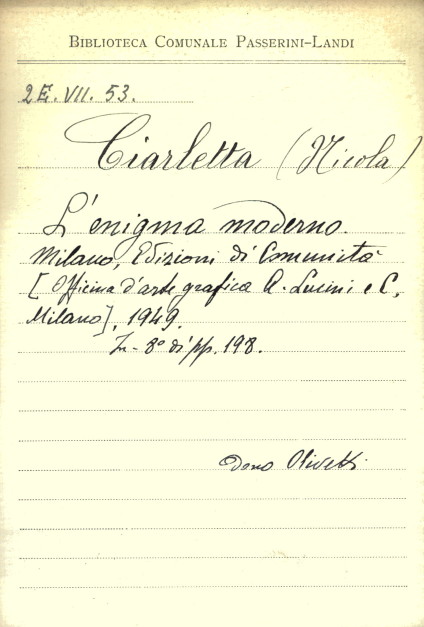 BIBLIOTECA COMUNALE PASSERINI-LANDI
2E. VII. 53.
Ciarletta (Nicola)
L'enigma moderno.
Milano, Edizioni di Comunità
[Officina d'arte grafica A. Lucini e C.
Milano], 1949.
In-8° di pp. 198.
dono Olivetti